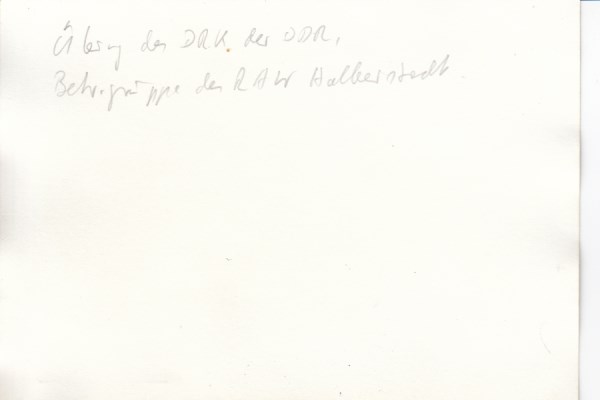 Übung des DRK der DDR,
Betr.gruppe des RAW Halberstadt